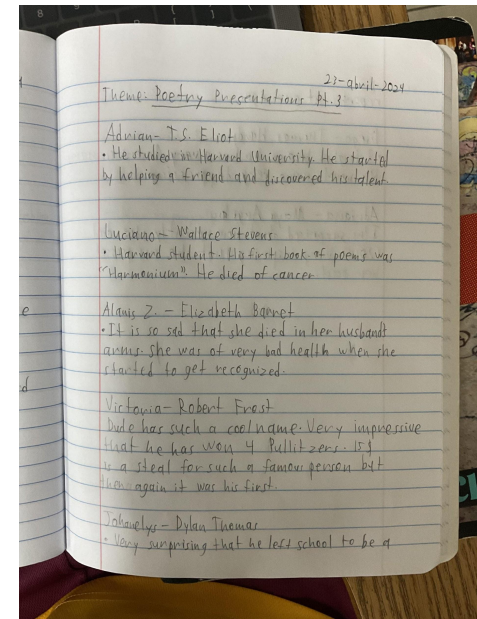 23-abril-2024
Theme: Poetry Presentations Pt. 3
Adrian- T.S. Eliot
• He studied in Harvard University. He started
by helping a friend and discovered his talent
Luciano - Wallace Stevens
• Harvard student. His first book of poems was
"Harmonium". He died of cancer
Alanis Z. - Elizabeth Barret
• It is so sad that she died in her husbands
arms. She was of very bad health when she
started to get recognized.
Victoria- Robert Frost
Dude has such a cool name. Very impressive
that he has won 4 Pullitzers. 15$
is a steal for such a famous person byt
then again it was his first.
Johanelys - Dylan Thomas
• Very surprising that he left school to be a